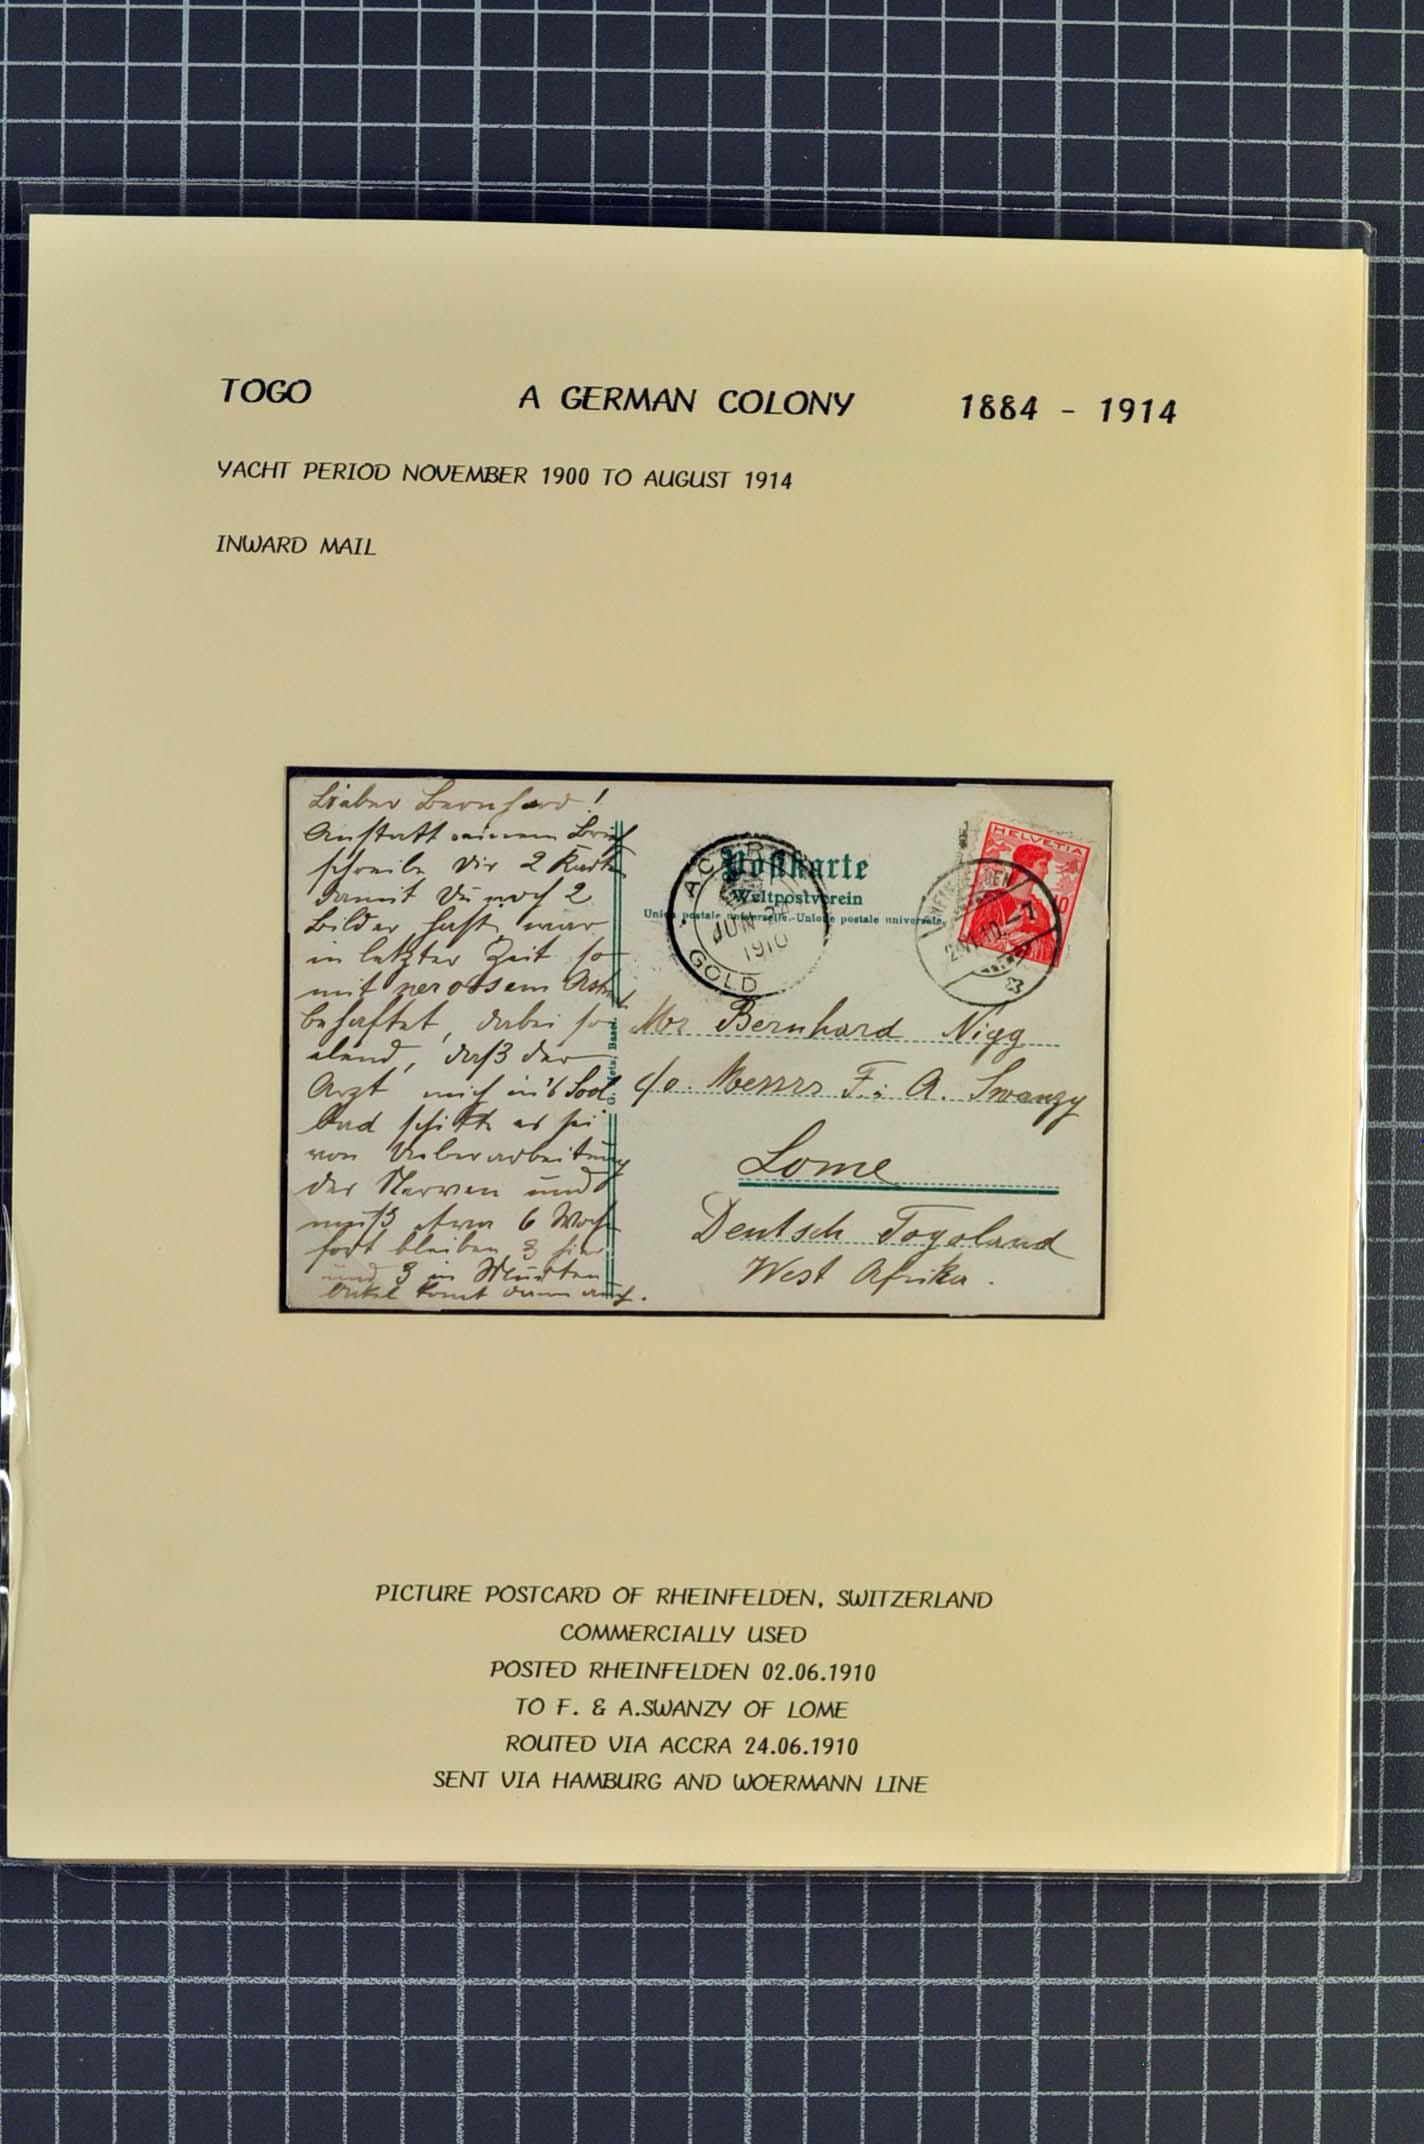 TOGO A GERMAN COLONY 1884 - 1914
YACHT PERIOD NOVEMBER 1900 TO AUGUST 1914
INWARD MAIL
Lieber Bernhard!
Anstatt einem Brief
schreibe Dir 2 Karten
damit Du noch 2
Bilder hast, war
in letzter Zeit so
mit nervösem
behaftet, dabei so
elend, daß der
Arzt mich in's Sool
bad schikte es sei
von Ueberarbeitung
der Nerven und
muß etwa 6 Woch
fort bleiben 3 hier
und 3 in
Onkel komt dann auch.
Postkarte
Weltpostverein
Union postale universelle.-Unione postale universale.
ACCRA
JUN 24
1910
GOLD
HELVETIA
10
RHEINFELDEN
2.VI.10.-7
Mr Bernhard Nigg
c/o. Messrs F. & A. Swanzy
Lome
Deutsch Togoland
West Afrika.
Basel
PICTURE POSTCARD OF RHEINFELDEN, SWITZERLAND
COMMERCIALLY USED
POSTED RHEINFELDEN 02.06.1910
TO F. & A.SWANZY OF LOME
ROUTED VIA ACCRA 24.06.1910
SENT VIA HAMBURG AND WOERMANN LINE